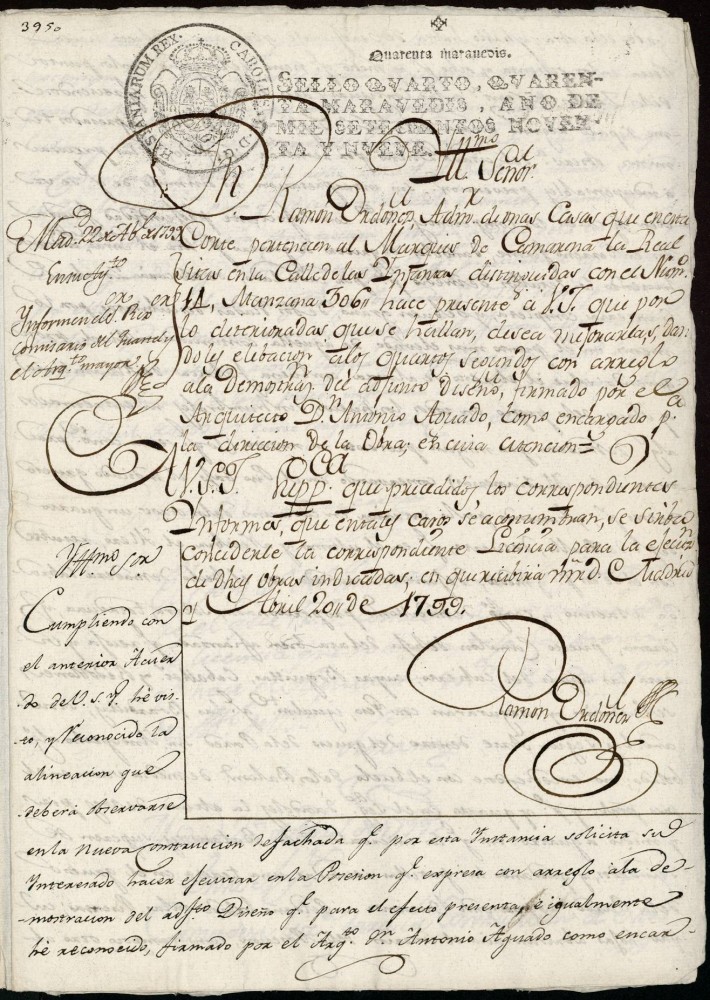 395.
Quarenta maravedis.
HISPANIARUM REX. CAROLUS IV D. G.
SELLO QVARTO, QVAREN-
TA MARAVEDIS, AÑO DE
MIL SETECIENTOS NOVEN
TA Y NUEVE.
Yll.mo Señor.
Dn Ramon Ordoñez, Adm.r de unas Casas que en esta
Corte pertenecen al Marques de Camarena la Real
sitas en la Calle de las Ynfantas distinguidas con el Num.o
14, Manzana 306 hace presente a V.S.Y. que por
lo deterioradas que se hallan, desea mejorarlas, dan
doles elebacion a los quartos segundos con arreglo
a la Demostraz.n del adjunto diseño, firmado por el
Arquitecto D.n Antonio Aguado, como encargado p.a
la direccion de la Obra; en cuia atencion=
A V.S.Y. Supp.ca que precedidos los correspondientes
Ynformes, que en tales casos se acostumbran, se sirba
concederle la correspondiente Licencia para la ejecuz.n
de dhas obras indicadas; en que recibira mrd. Madrid
y Abril 20 de 1799.
Ramon Ordoñez
Mad.d 22 de Ab.l de 1799
En su Ay.to
Ynformen los S.res
Comisario del Quartel y
el Arq.to mayor
Yllmo Sor
Cumpliendo con
el anterior Acuer
do de V.S.Y. he vis-
-to, y reconocido la
alineacion que
deberá observarse
en la nueva construccion de fachada q.e por esta Ynstancia solicita su
Ynteresado hacer ejecutar en la Posesion q.e expresa con arreglo a la de-
-mostracion del adj.to Diseño q.e para el efecto presenta, e igualmente
he reconocido, firmado por el Arq.to Dn Antonio Aguado como encar-